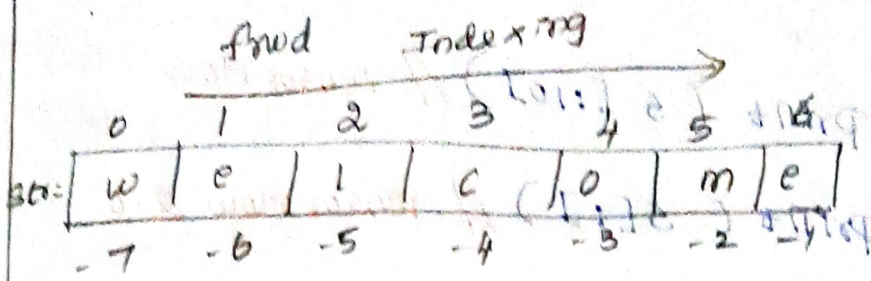 frwd Indexing
0 1 2 3 4 5 6
str= w e l c o m e
-7 -6 -5 -4 -3 -2 -1